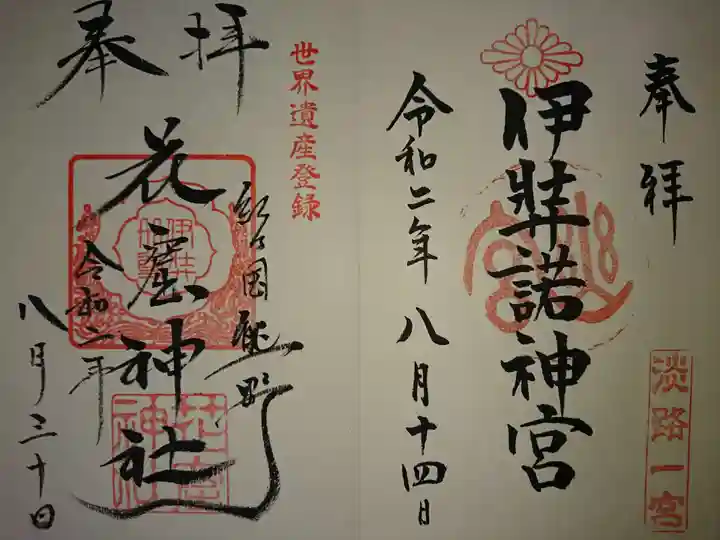 奉拝
伊弉諾神宮
令和二年八月十四日
淡路一宮
世界遺産登録
奉拝
紀乃国熊野
花窟神社
花窟
神社
令和二年
八月三十日